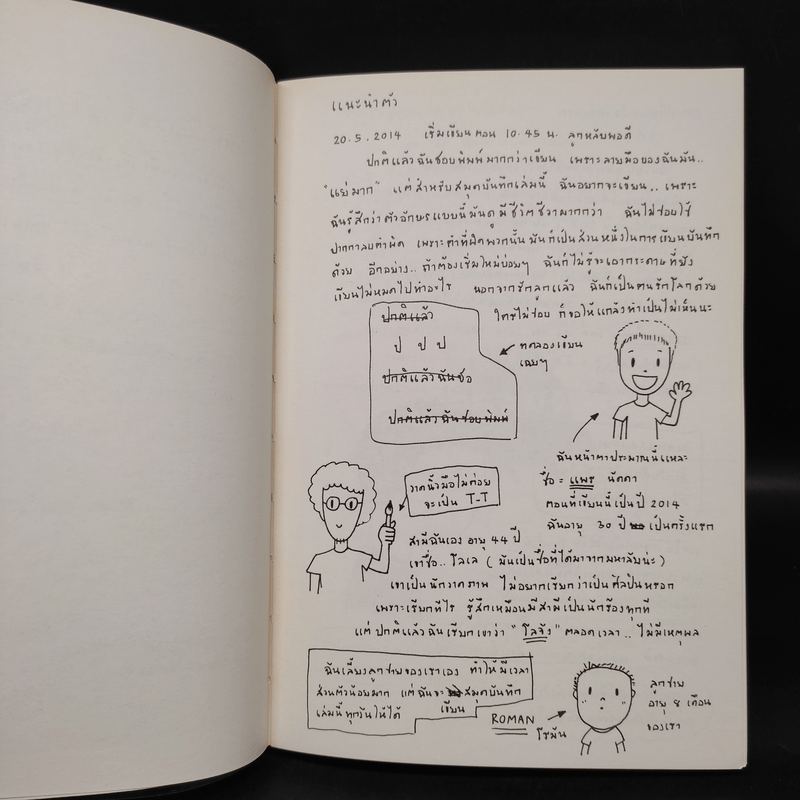 แนะนำตัว
20.5.2014 เริ่มเขียนตอน 10.45 น. ลูกหลับพอดี
ปกติแล้วฉันชอบพิมพ์มากกว่าเขียน เพราะลายมือของฉันมัน..
"แย่มาก" แต่สำหรับสมุดบันทึกเล่มนี้ ฉันอยากจะเขียน.. เพราะ
ฉันรู้สึกว่าตัวอักษรแบบนี้มันดูมีชีวิตชีวามากกว่า ฉันไม่ชอบใช้
ปากกาลบคำผิด เพราะคำที่ผิดพวกนั้นมันก็เป็นส่วนหนึ่งในการเขียนบันทึก
ด้วย อีกอย่าง.. ถ้าต้องเริ่มใหม่บ่อยๆ ฉันก็ไม่รู้จะเอากระดาษที่ยัง
เขียนไม่หมดไปทำอะไร นอกจากรักลูกแล้ว ฉันก็เป็นคนรักโลกด้วย
ใครไม่ชอบ ก็ขอให้แกล้งทำเป็นไม่เห็นนะ
ปกติแล้ว
ป ป ป
ปกติแล้วฉันชอ
ปกติแล้วฉันชอบพิมพ์
ทดลองเขียน
เฉยๆ
ฉันหน้าตาประมาณนี้แหละ
ชื่อ = แพร นัดดา
ตอนที่เขียนนี้เป็นปี 2014
ฉันอายุ 30 ปี เป็นครั้งแรก
วาดนิ้วมือไม่ค่อย
จะเป็น T-T
สามีฉันเอง อายุ 44 ปี
เขาชื่อ.. โลเล (มันเป็นชื่อที่ได้มาจากมหาลัยน่ะ)
เขาเป็นนักวาดภาพ ไม่อยากเรียกว่าเป็นศิลปินหรอก
เพราะเรียกทีไร รู้สึกเหมือนมีสามีเป็นนักร้องทุกที
แต่ปกติแล้วฉันเรียกเขาว่า "โลจัง" ตลอดเวลา.. ไม่มีเหตุผล
ฉันเลี้ยงลูกชายของเราเอง ทำให้มีเวลา
ส่วนตัวน้อยมาก แต่ฉันจะเขียนสมุดบันทึก
เล่มนี้ทุกวันให้ได้
ROMAN
โรมัน
ลูกชาย
อายุ 8 เดือน
ของเรา